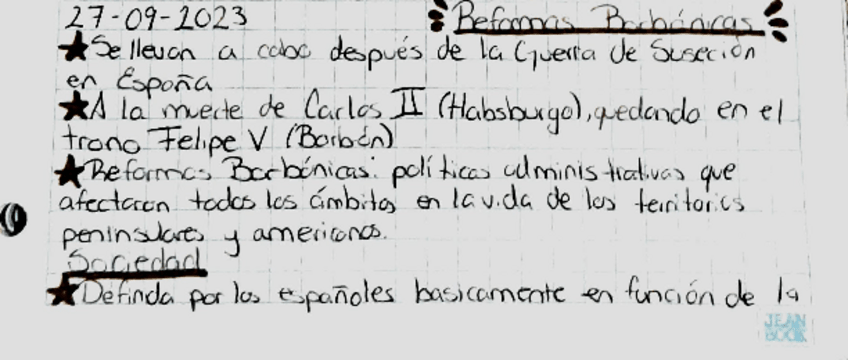 27-09-2023 Reformas Borbónicas
★Se llevan a cabo después de la Guerra de Suseción
en España
★A la muerte de Carlos II (Habsburgo), quedando en el
trono Felipe V (Borbón)
★Reformas Borbónicas: políticas administrativas que
afectaron todos los ámbitos en la vida de los territorios
peninsulares y americanos.
Sociedad
★Definda por los españoles basicamente en función de la
JEAN
BOOK